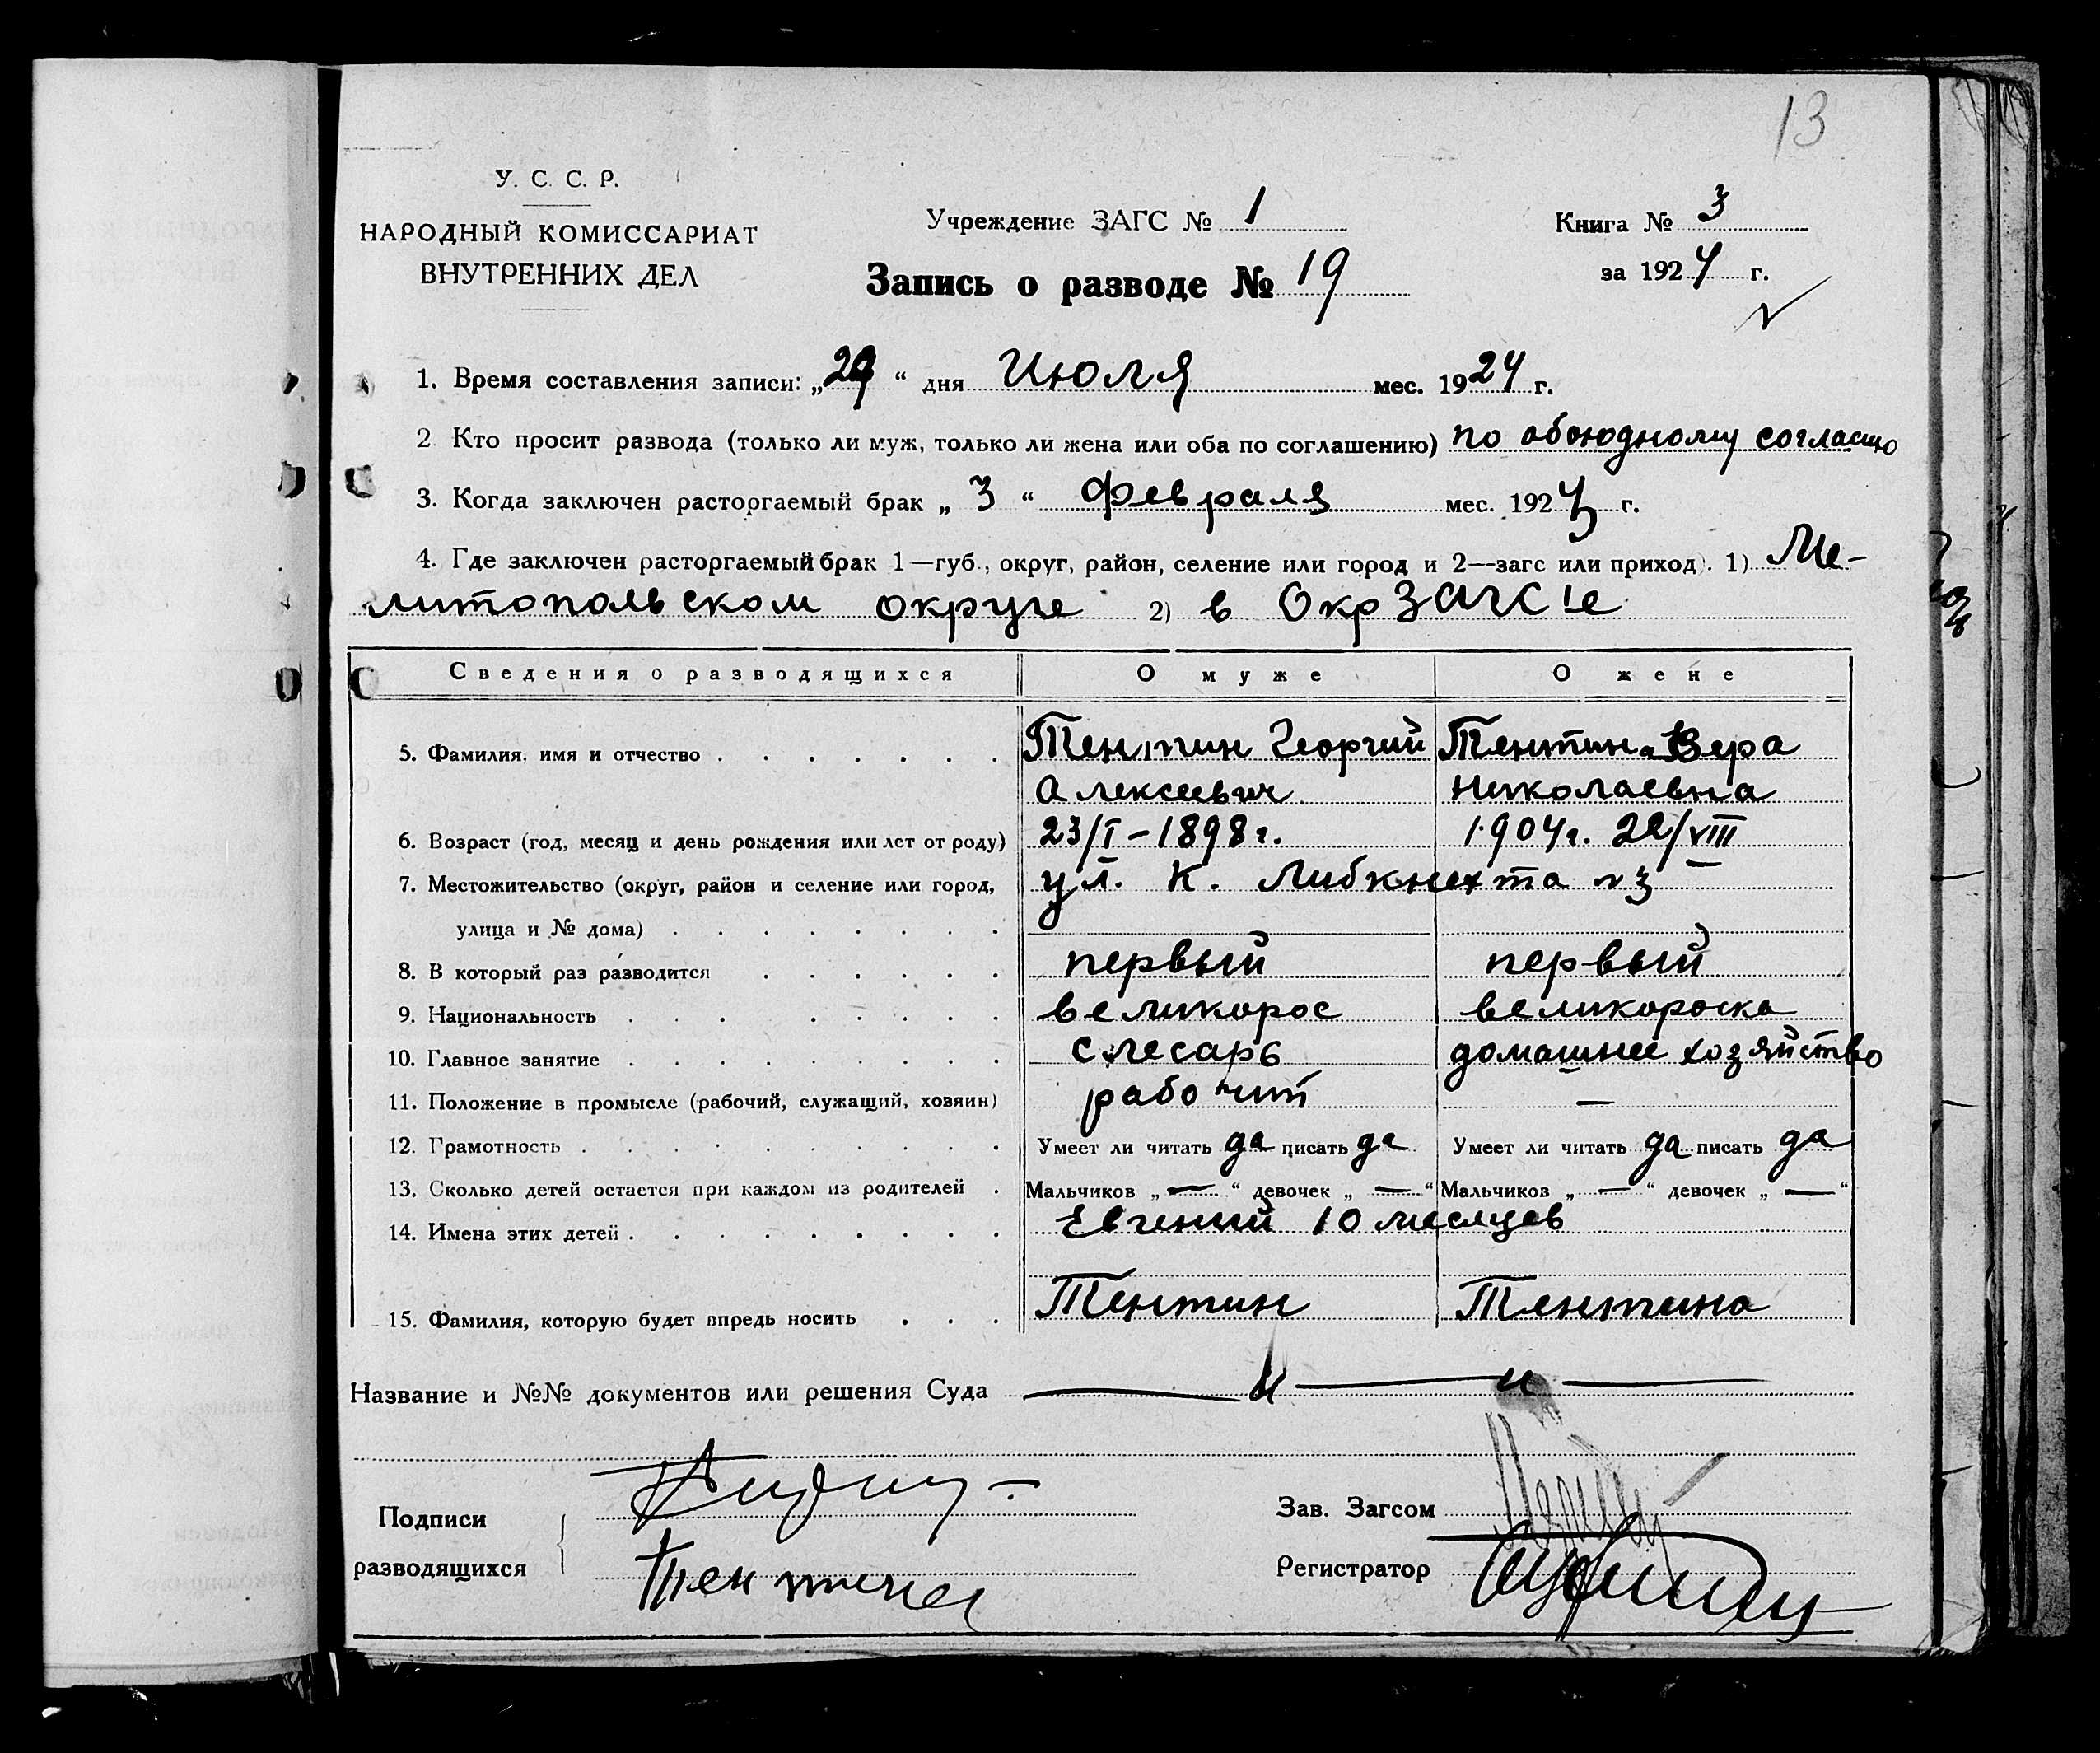 13
У. С. С. Р.
НАРОДНЫЙ КОМИССАРИАТ
ВНУТРЕННИХ ДЕЛ
Учреждение ЗАГС № 1
Книга № 3
Запись о разводе № 19
за 1924 г.
1. Время составления записи: „29“ дня Июля мес. 1924 г.
2. Кто просит развода (только ли муж, только ли жена или оба по соглашению) по обоюдному согласию
3. Когда заключен расторгаемый брак „ 3 “ февраля мес. 1923 г.
4. Где заключен расторгаемый брак 1—губ., округ, район, селение или город и 2—загс или приход). 1) Ме-
литопольском округе 2) в ОкрЗАГС'е
Сведения о разводящихся О муже О жене
5. Фамилия, имя и отчество Тентин Георгий Тентина Вера
Алексеевич Николаевна
6. Возраст (год, месяц и день рождения или лет от роду) 23/I – 1898 г. 1904 г. 22/VIII
7. Местожительство (округ, район и селение или город, ул. К. Либкнехта № 3
улица и № дома)
8. В который раз разводится первый первый
9. Национальность великорос великороска
10. Главное занятие слесарь домашнее хозяйство
11. Положение в промысле (рабочий, служащий, хозяин) рабочий —
12. Грамотность Умеет ли читать да писать да Умеет ли читать да писать да
13. Сколько детей остается при каждом из родителей Мальчиков „ — “ девочек „ — “ Мальчиков „ — “ девочек „ — “
14. Имена этих детей Евгений 10 месяцев
15. Фамилия, которую будет впредь носить Тентин Тентина
Название и №№ документов или решения Суда — „ — „ —
Подписи
Зав. Загсом
разводящихся Тентина
Регистратор